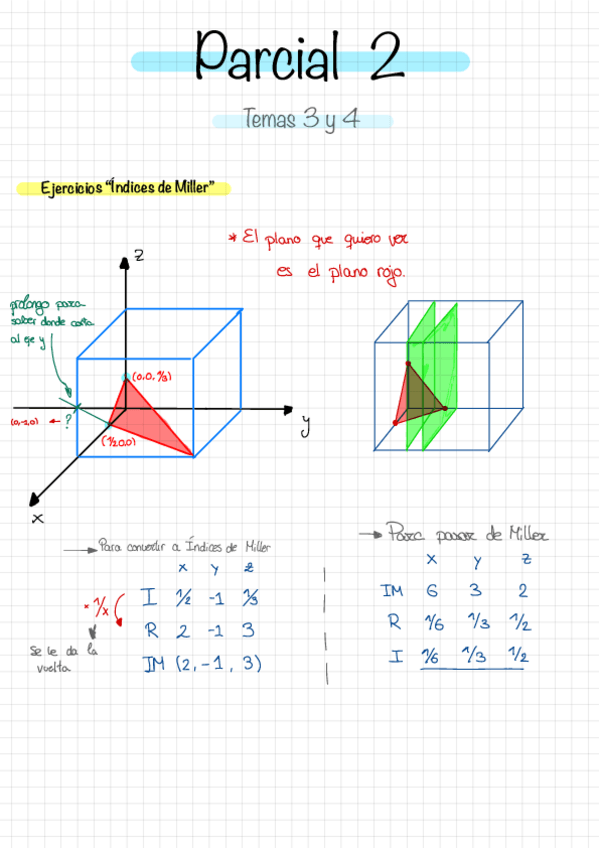 Parcial 2
Temas 3 y 4
Ejercicios "Índices de Miller"
* El plano que quiero ver
es el plano rojo.
z
prolongo para
saber donde corta
al eje y
(0,0,1/3)
(0,-1,0) ← ?
(1/2,0,0)
y
x
→ Para convertir a Índices de Miller
x y z
I 1/2 -1 1/3
· 1/x
R 2 -1 3
Se le da la
vuelta
IM (2, -1, 3)
→ Para pasar de Miller
x y z
IM 6 3 2
R 1/6 1/3 1/2
I 1/6 1/3 1/2